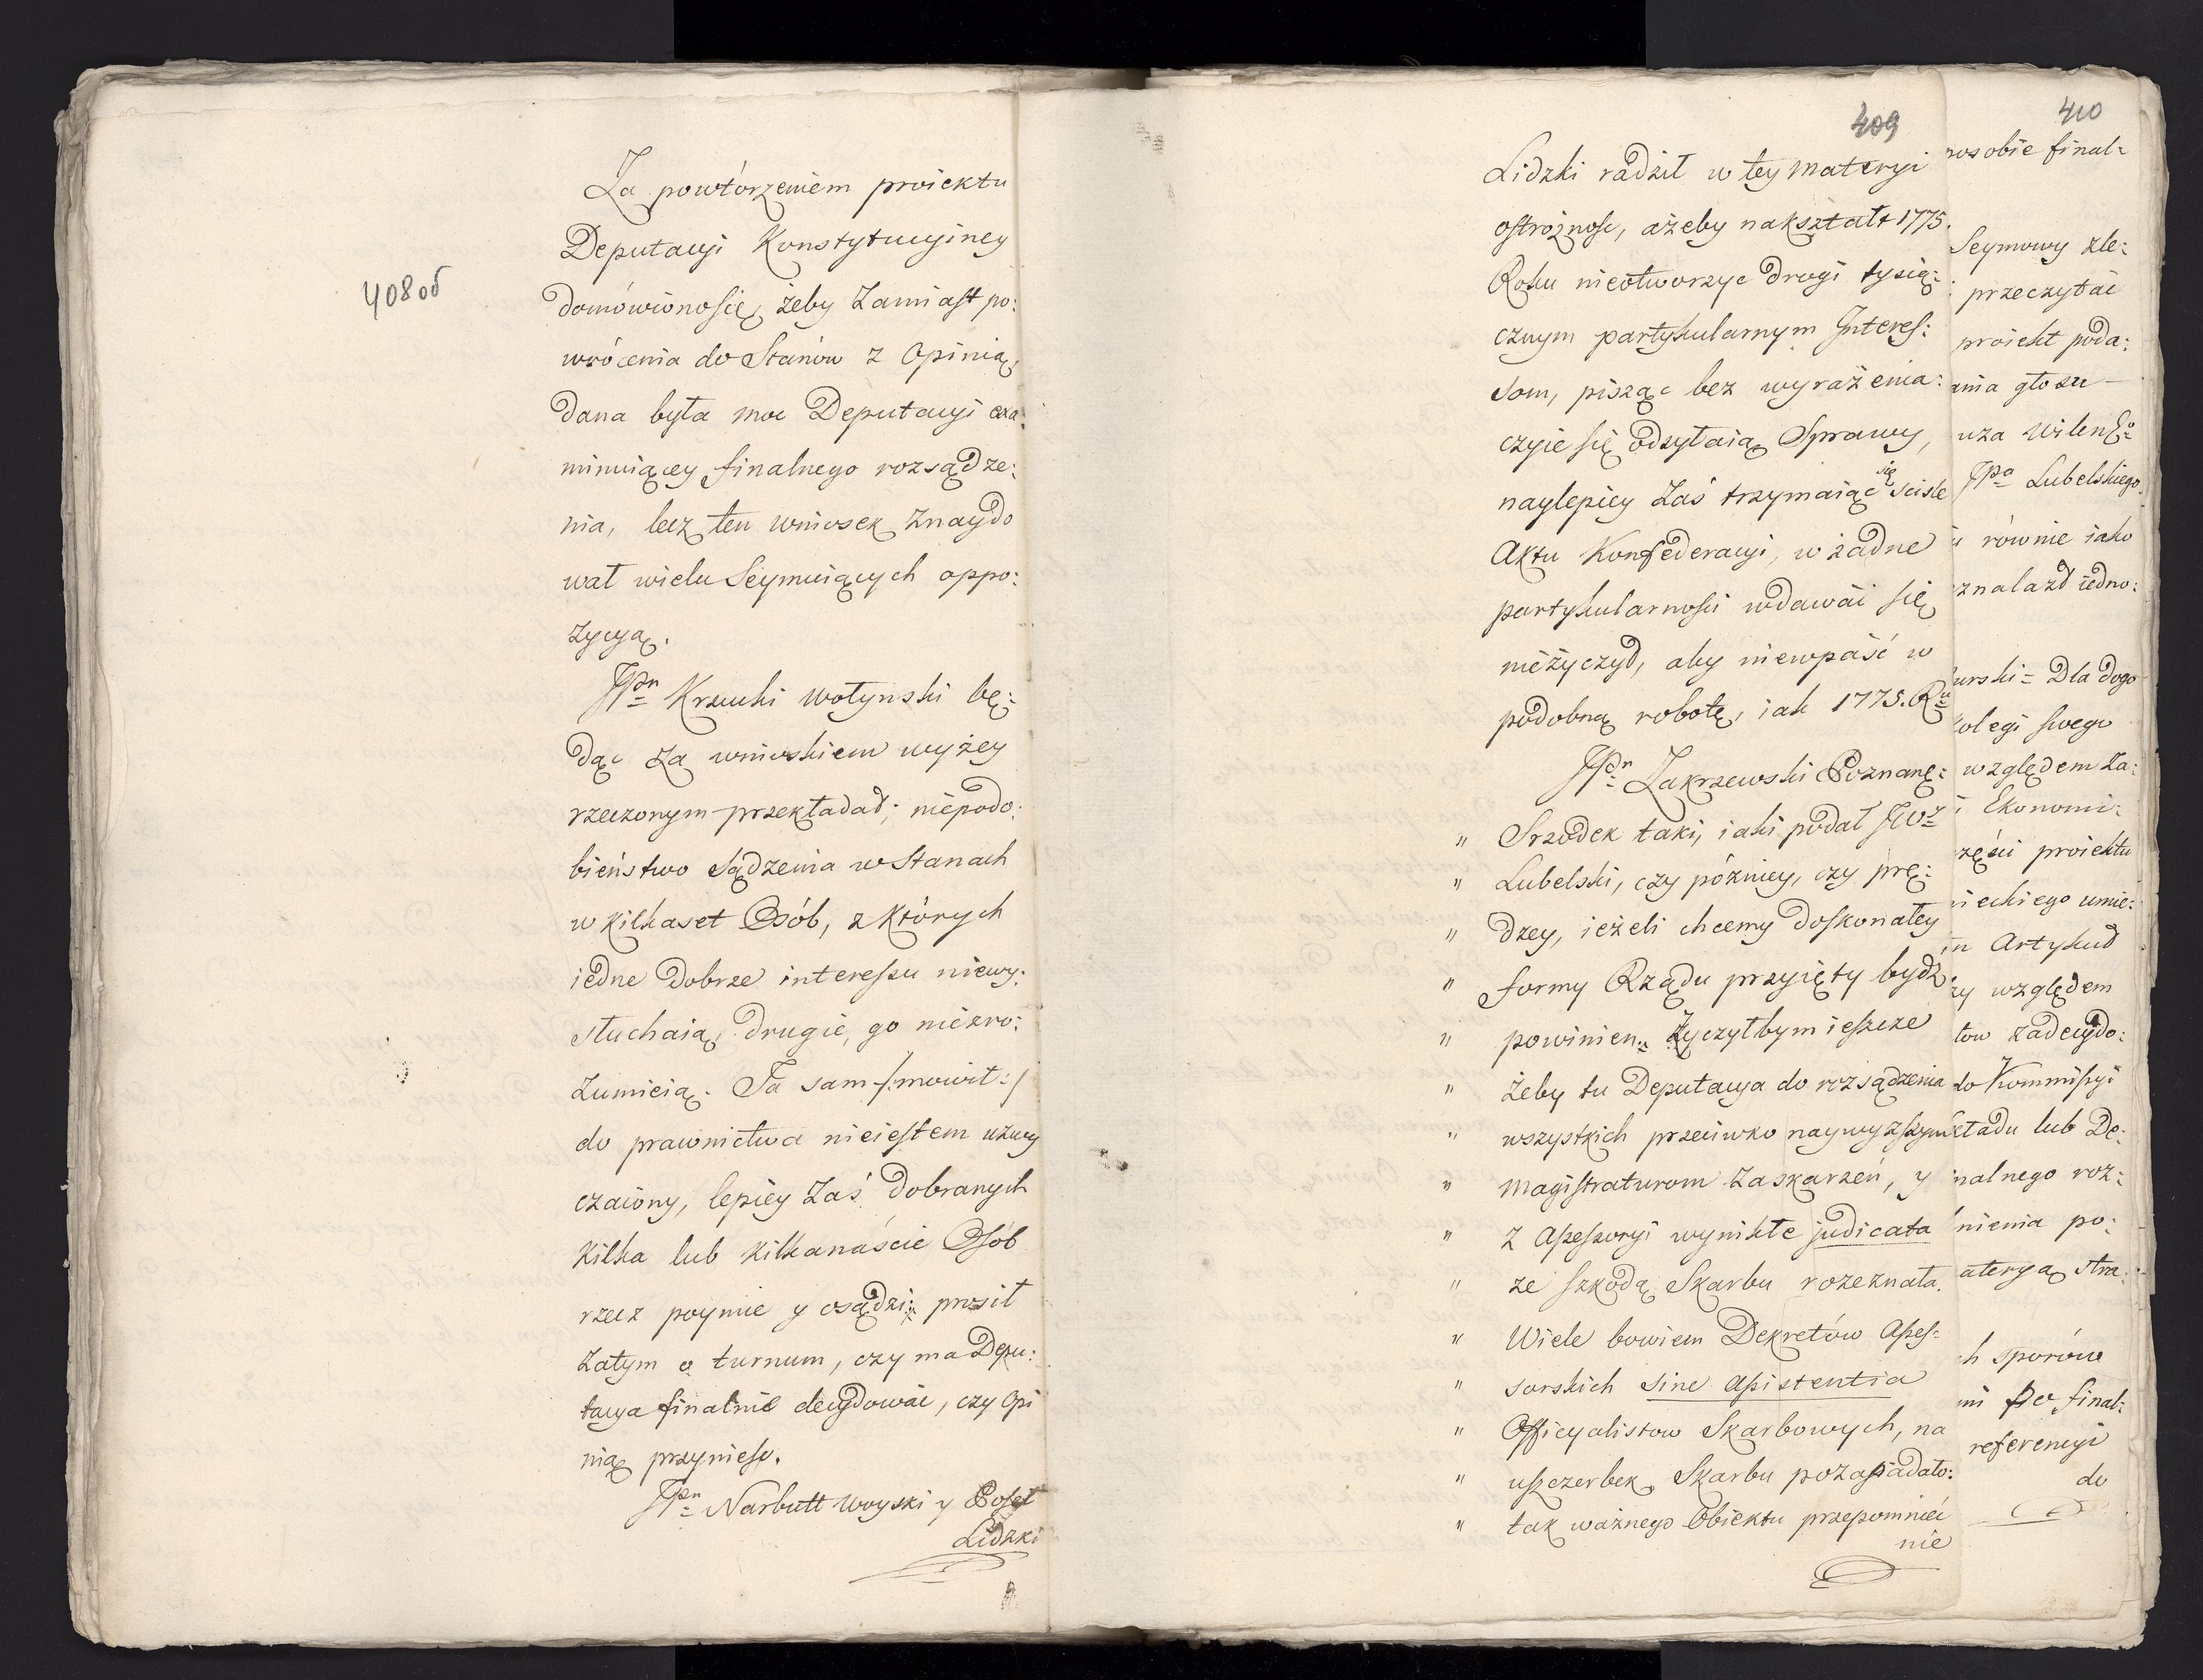 408 об
Za powtórzeniem proiektu
Deputacyi Konstytucyiney
domówionosię, żeby zamiast po:
wrócenia do Stanów z Opinią,
dana była moc Deputacyi exa:
minuiącey finalnego rozsądze:
nia, lecz ten wniosek znaydo
wał wielu Seymuiących oppo:
zycyą.
JPn Krzucki Wołynski bę:
dąc za wnioskiem wyżey
rzeczonym przekładał; niepodo:
bieństwo sądzenia w Stanach
w kilkaset Osób, z których
iedne dobrze interessu niewy:
słuchaią, drugie, go niezro:
zumieią. Ja sam /:mowił:/
do prawnictwa nieiestem użwy
czaiony, lepiey zaś dobranych
kilka lub kilkanaście Osób
rzecz poymie y osądzi: prosił
zatym o turnum, czy ma Depu:
tacya finalnie decydować, czy Opi
nią przynieść.
JPn Narbutt Woyski y Poseł
Lidzki
409
Lidzki radził w tey materyi
ostrożność, ażeby nakształt 1775.
Roku nieotworzyc drogi tysią:
cznym partykularnym Interes:
som, pisząc bez wyrażenia:
czyie się odsyłaią Sprawy,
naylepiey zaś trzymaiąc się sciśle
Aktu Konfederacyi, w żadne
partykularności wdawać się
nieżyczył, aby niewpaść w
podobną robotę, iak 1775. Ru
JPn Zakrzewski Poznanę:
" Srzodek taki, iaki podał JWz
" Lubelski, czy pózniey, czy prę:
" dzey, ieżeli chcemy doskonałey
" formy Rządu przyięty bydź
" powinien. Życzyłbym ieszcze
" żeby tu Deputacya do rozsądzenia
" wszystkich przeciwko naywyższym
" Magistraturom zaskarzeń, y
" z Assessoryi wynikłe judicata
" ze szkodą Skarbu rozeznała.
" Wiele bowiem Dekretów Asses:
" sorskich sine assistentia
" Officyalistow Skarbowych, na
" uszczerbek Skarbu pozapadało:
" tak ważnego Obiektu przepomnieć
nie
410
osobie final:
Seymowy zle:
przeczytać
proiekt poda:
ania głosu
uża Wilenso
JPa Lubelskiego
równie iako
znalazł iedno:
urski = Dla dogo
olegi swego
względem za:
i Ekonomi:
zęści proiektu
ieckiego umie:
n Artykuł
zy względem
tow zadecydo:
do Kommissyi
kładu lub De:
nalnego roz:
nienia po:
ateryą stra:
h sporów
mi do final:
referencyi
do